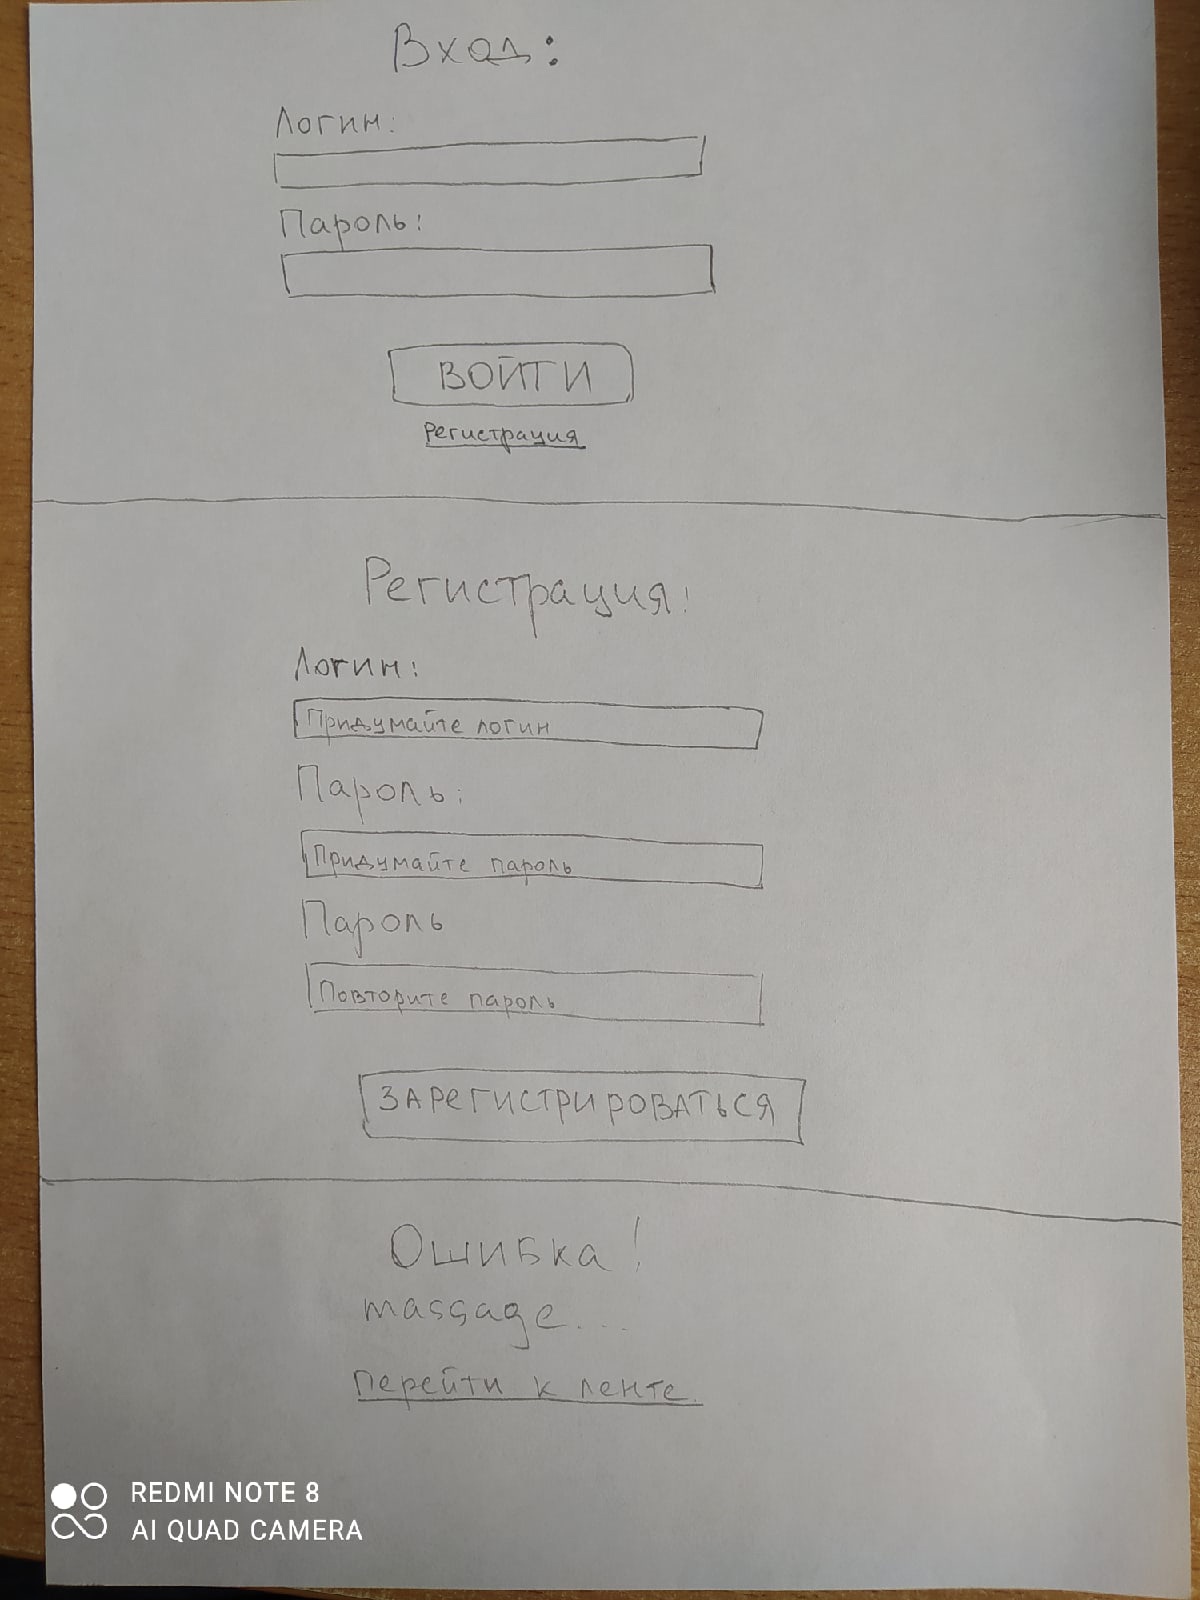 Вход:
Логин:
Пароль:
ВОЙТИ
Регистрация
Регистрация:
Логин:
Придумайте логин
Пароль:
Придумайте пароль
Пароль
Повторите пароль
ЗАРЕГИСТРИРОВАТЬСЯ
Ошибка!
massage...
перейти к ленте.
REDMI NOTE 8
AI QUAD CAMERA